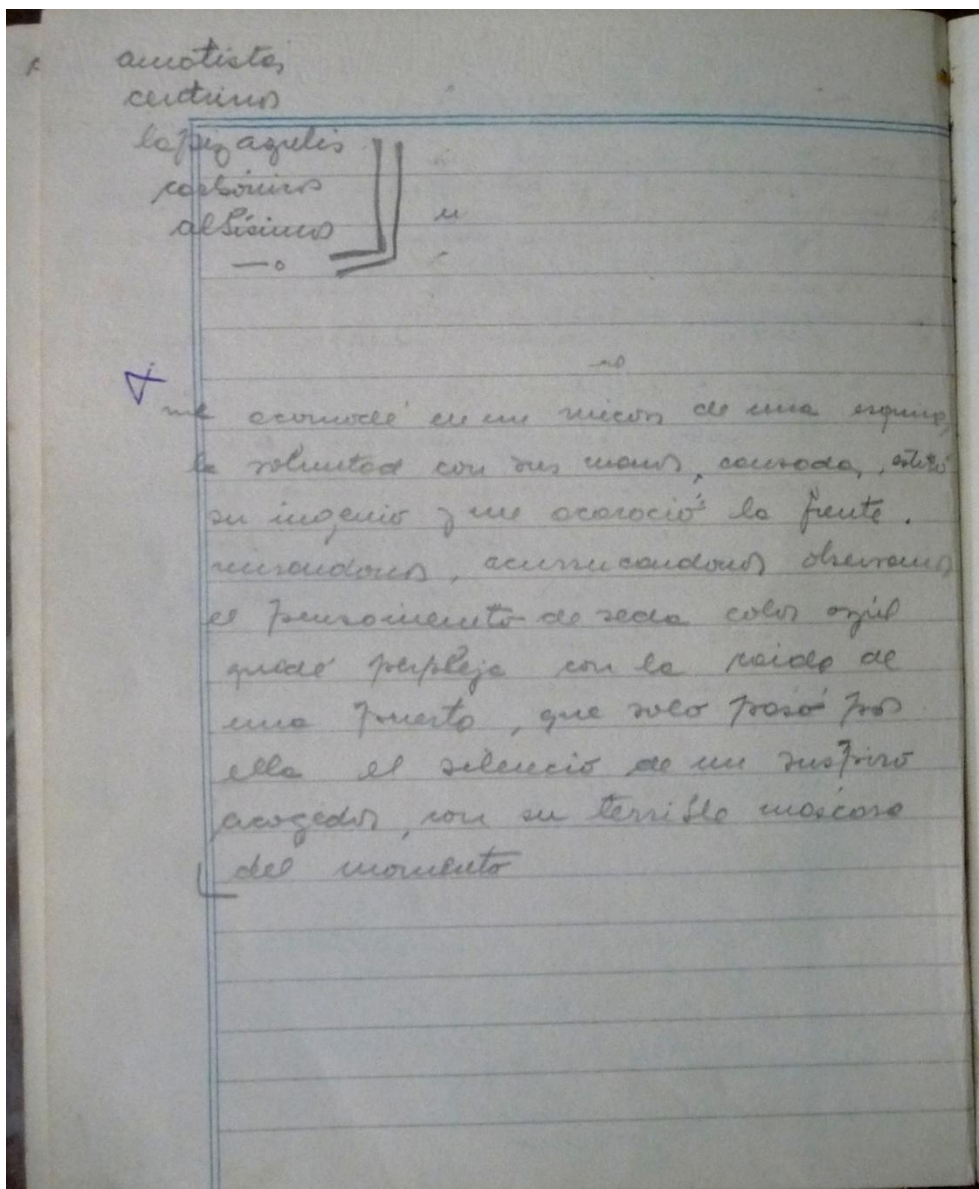 amatistas
centrinos
lapiz azulis
carbónicos
altísimos
me acomodé en un rincon de una esquina,
la voluntad con sus manos, cansada, estiró
su ingenio y me acaració la frente.
acurrucandonos observamos
el pensamiento de seda color azul
quedé perpleja con la caida de
una puerta, que solo pasó por
ella el silencio de un suspiro
acogedor, con su terrible máscara
del momento